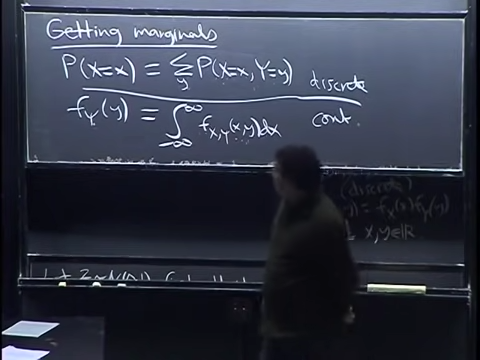 Getting marginals
P(X=x) = Σ_y P(X=x, Y=y) discrete
f_Y(y) = ∫_{-∞}^{∞} f_{X,Y}(x,y)dx cont.
(discrete)
y) = f_X(x)f_Y(y)
x,y∈ℝ